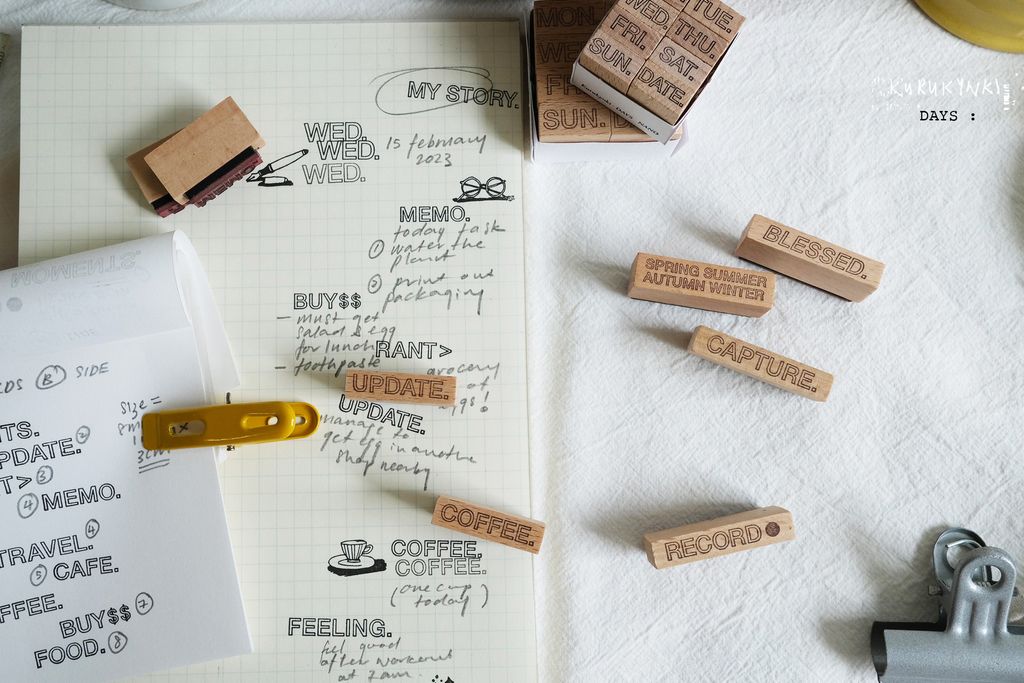 MY STORY.
WED.
WED.
WED.
15 february
2023
MEMO.
today task
① water the
plant
② print out
packaging
BUY$$
– must get
salad & egg
for lunch
– toothpaste
RANT>
grocery
of
eggs!
UPDATE.
UPDATE.
manage to
get egg in another
shop nearby
COFFEE.
COFFEE.
COFFEE.
(one cup
today)
FEELING.
feel good
after workout
at 7am.
MOMENTS
B SIDE
size =
3cm
TS.
PDATE. ②
T> ③
④ MEMO.
TRAVEL. ④
⑤ CAFE.
FFEE.
BUY$$ ⑦
FOOD. ⑧
MON.
WE
FR
SUN. D
WED. TUE.
FRI. THU.
SUN. SAT.
DATE.
KURUKYNKI
DAYS :
BLESSED.
SPRING SUMMER
AUTUMN WINTER
CAPTURE.
RECORD